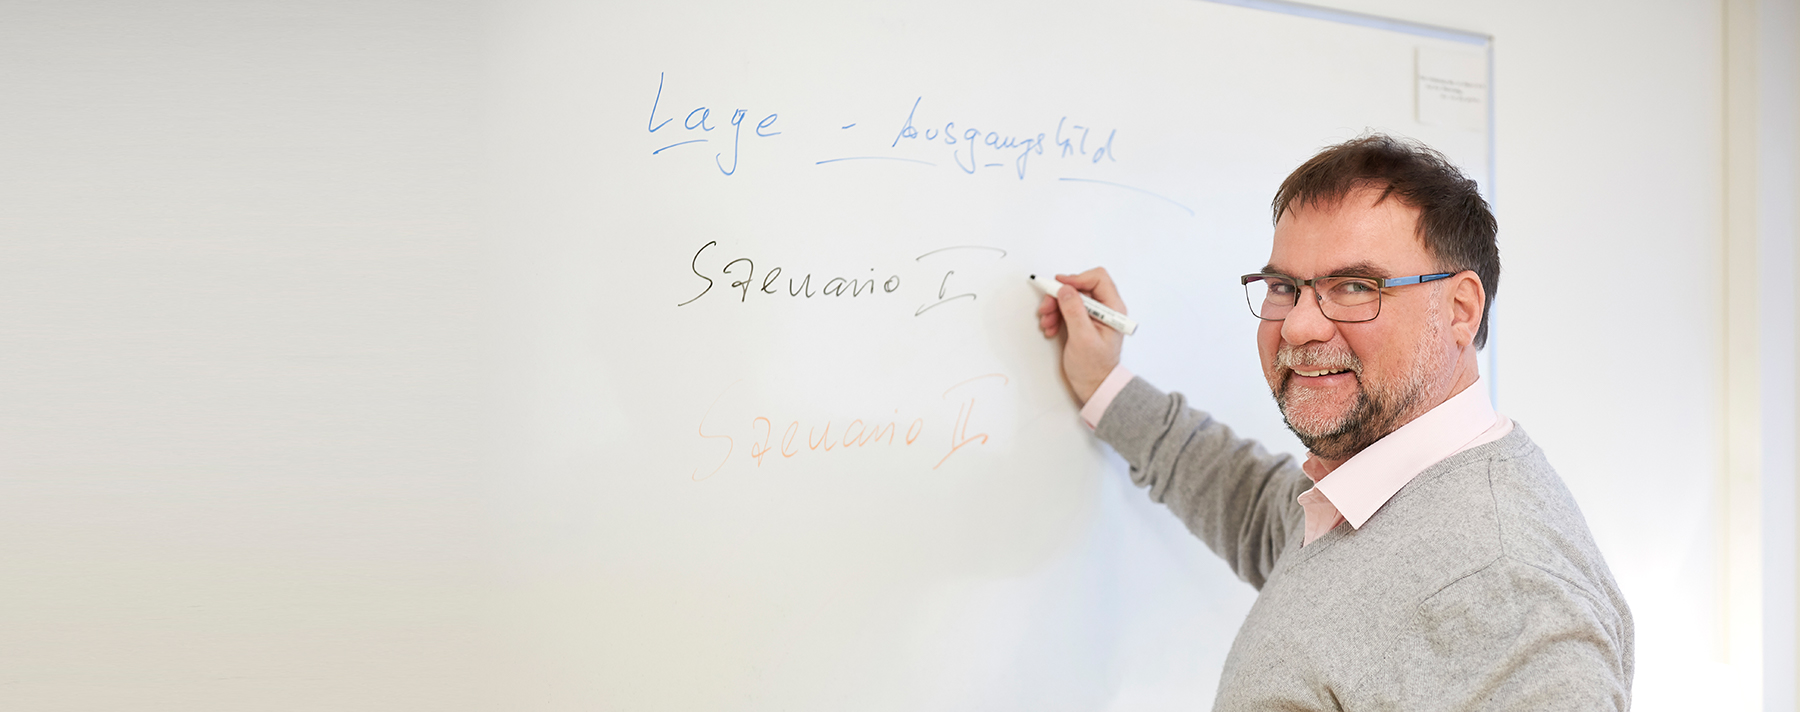 Lage - Ausgangsbild
Szenario I
Szenario II